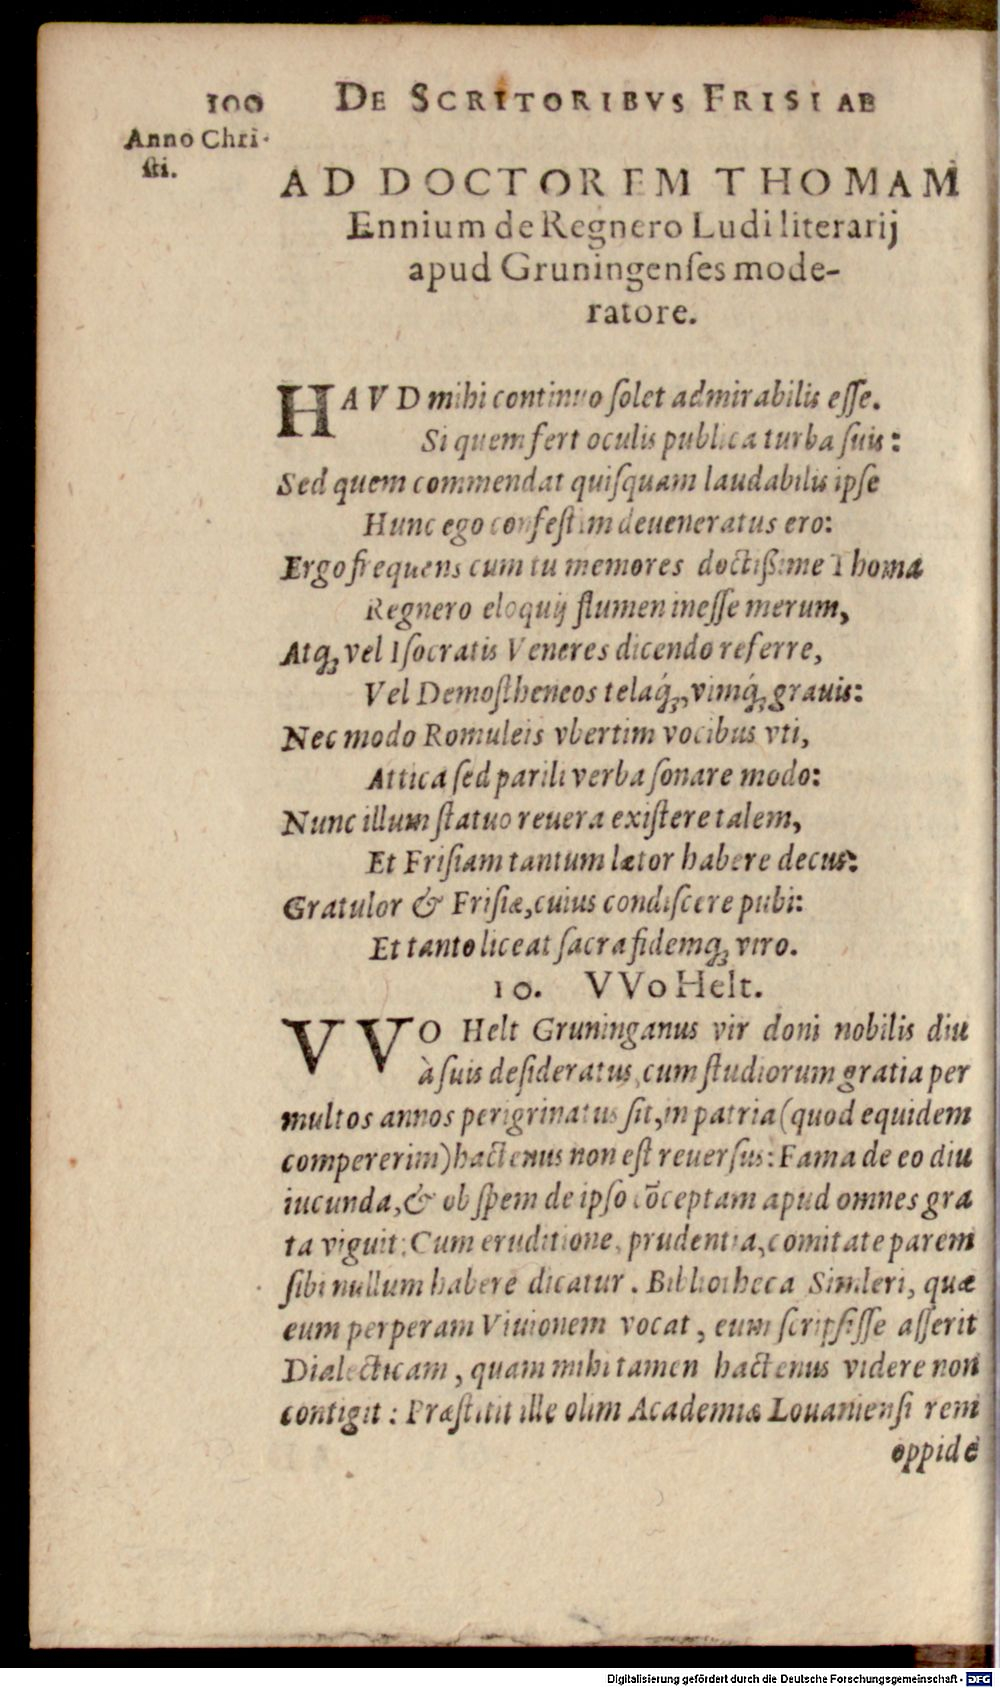 100 DE SCRITORIBVS FRISIAE
Anno Chri-
ſti.
AD DOCTOREM THOMAM
Ennium de Regnero Ludi literarij
apud Gruningenſes mode-
ratore.
HAVD mihi continuo ſolet admirabilis eſſe.
Si quem fert oculis publica turba ſuis:
Sed quem commendat quiſquam laudabilis ipſe
Hunc ego confeſtim deueneratus ero:
Ergo frequens cum tu memores doctißime Thoma
Regnero eloquij flumen ineſſe merum,
Atq́; vel Iſocratis Veneres dicendo referre,
Vel Demoſtheneos telaq́;, vimq́; grauis:
Nec modo Romuleis vbertim vocibus vti,
Attica ſed parili verba ſonare modo:
Nunc illum ſtatuo reuera exiſtere talem,
Et Friſiam tantum lætor habere decus:
Gratulor & Friſiæ, cuius condiſcere pubi:
Et tanto liceat ſacra fidemq; viro.
10. VVo Helt.
VVO Helt Gruninganus vir doni nobilis diu
à ſuis deſideratus, cum ſtudiorum gratia per
multos annos perigrinatus ſit, in patria (quod equidem
compererim) hactenus non eſt reuerſus: Fama de eo diu
iucunda, & ob ſpem de ipſo cõceptam apud omnes gra
ta viguit: Cum eruditione, prudentia, comitate parem
ſibi nullum habere dicatur. Bibliotheca Simleri, quæ
eum perperam Viuionem vocat, eum ſcripſiſſe aſſerit
Dialecticam, quam mihi tamen hactenus videre non
contigit: Præſtitit ille olim Academiæ Louanienſi rem
oppidè
Digitalisierung gefördert durch die Deutsche Forschungsgemeinschaft - DFG